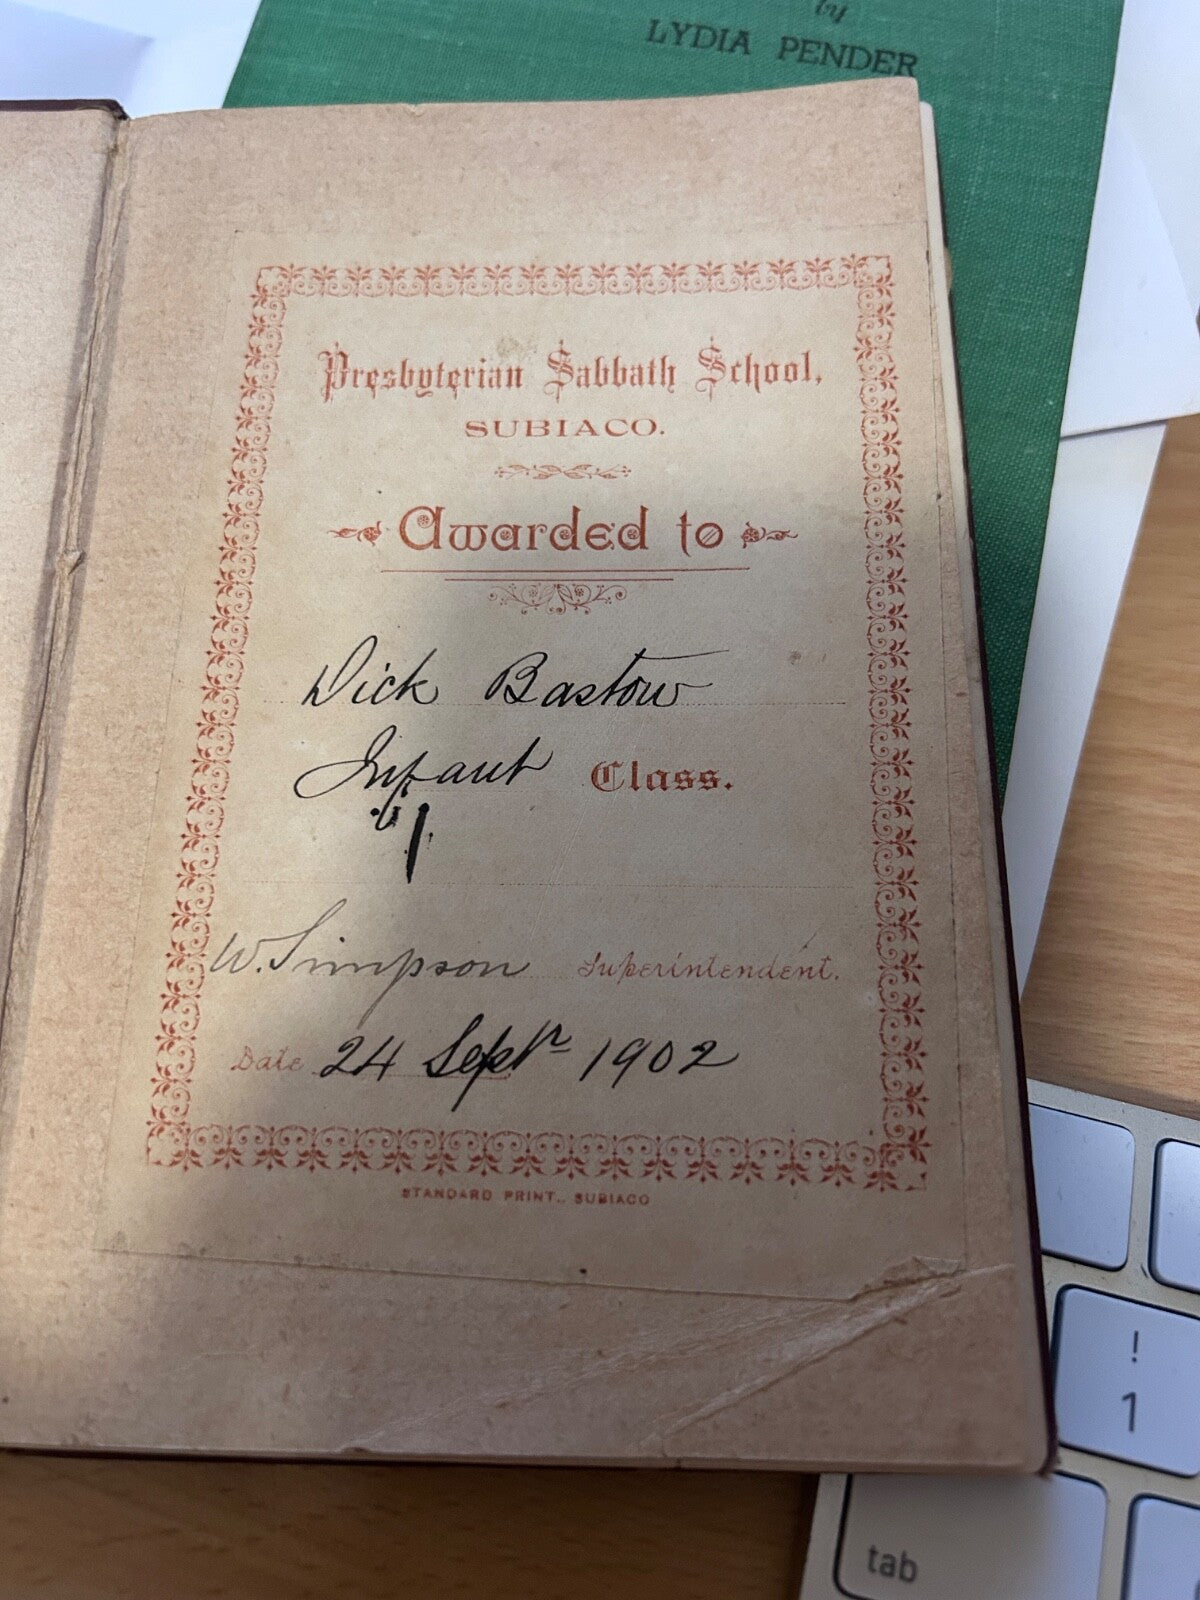 by
LYDIA PENDER
Presbyterian Sabbath School,
SUBIACO.
Awarded to
Dick Bastow
Infant Class.
W. Simpson Superintendent.
Date 24 Septr 1902
STANDARD PRINT., SUBIACO
!
1
tab